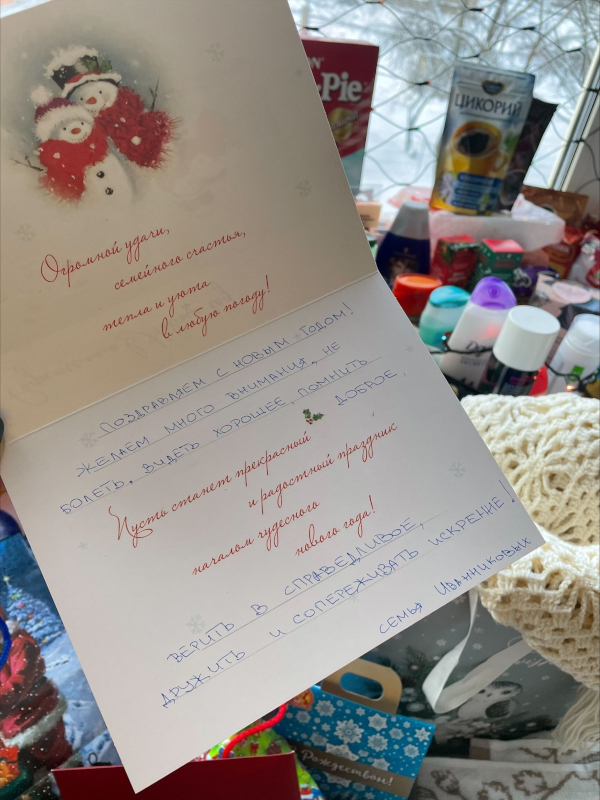 Огромной удачи,
семейного счастья,
тепла и уюта
в любую погоду!
ПОЗДРАВЛЯЕМ С НОВЫМ ГОДОМ!
ЖЕЛАЕМ МНОГО ВНИМАНИЯ, НЕ
БОЛЕТЬ, ВИДЕТЬ ХОРОШЕЕ, ПОМНИТЬ
ДОБРОЕ,
Пусть станет прекрасный
и радостный праздник
началом чудесного
нового года!
ВЕРИТЬ В СПРАВЕДЛИВОЕ,
ДРУЖИТЬ И СОПЕРЕЖИВАТЬ ИСКРЕННЕ!
СЕМЬЯ ИВАННИКОВЫХ
Pie
ЦИКОРИЙ
Рождеством!